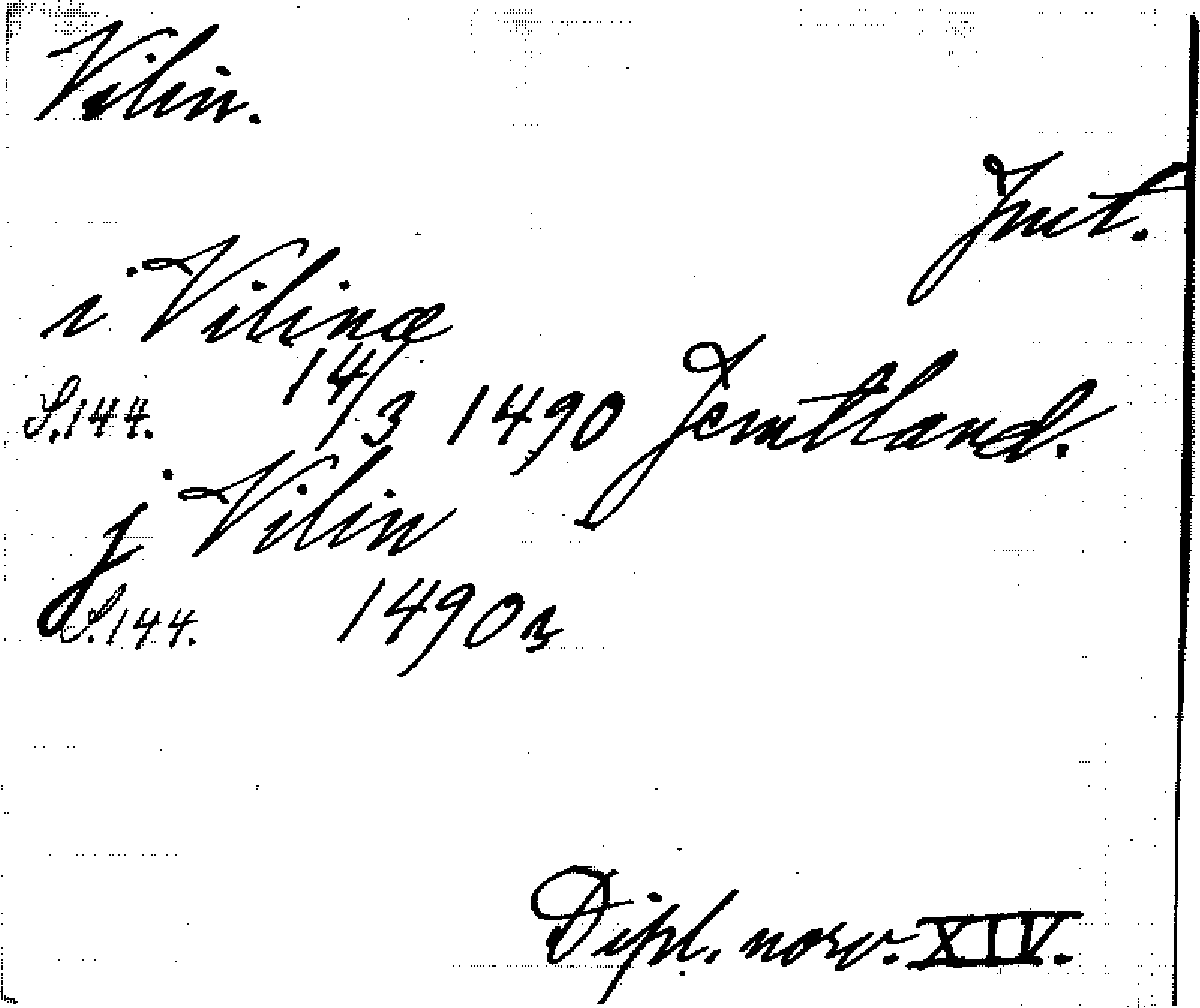 Vilin.
Jmt.
i Vilinæ
S.144. 14/3 1490 Jemtland.
j Vilin
S.144. 1490
Dipl. norv. XIV.